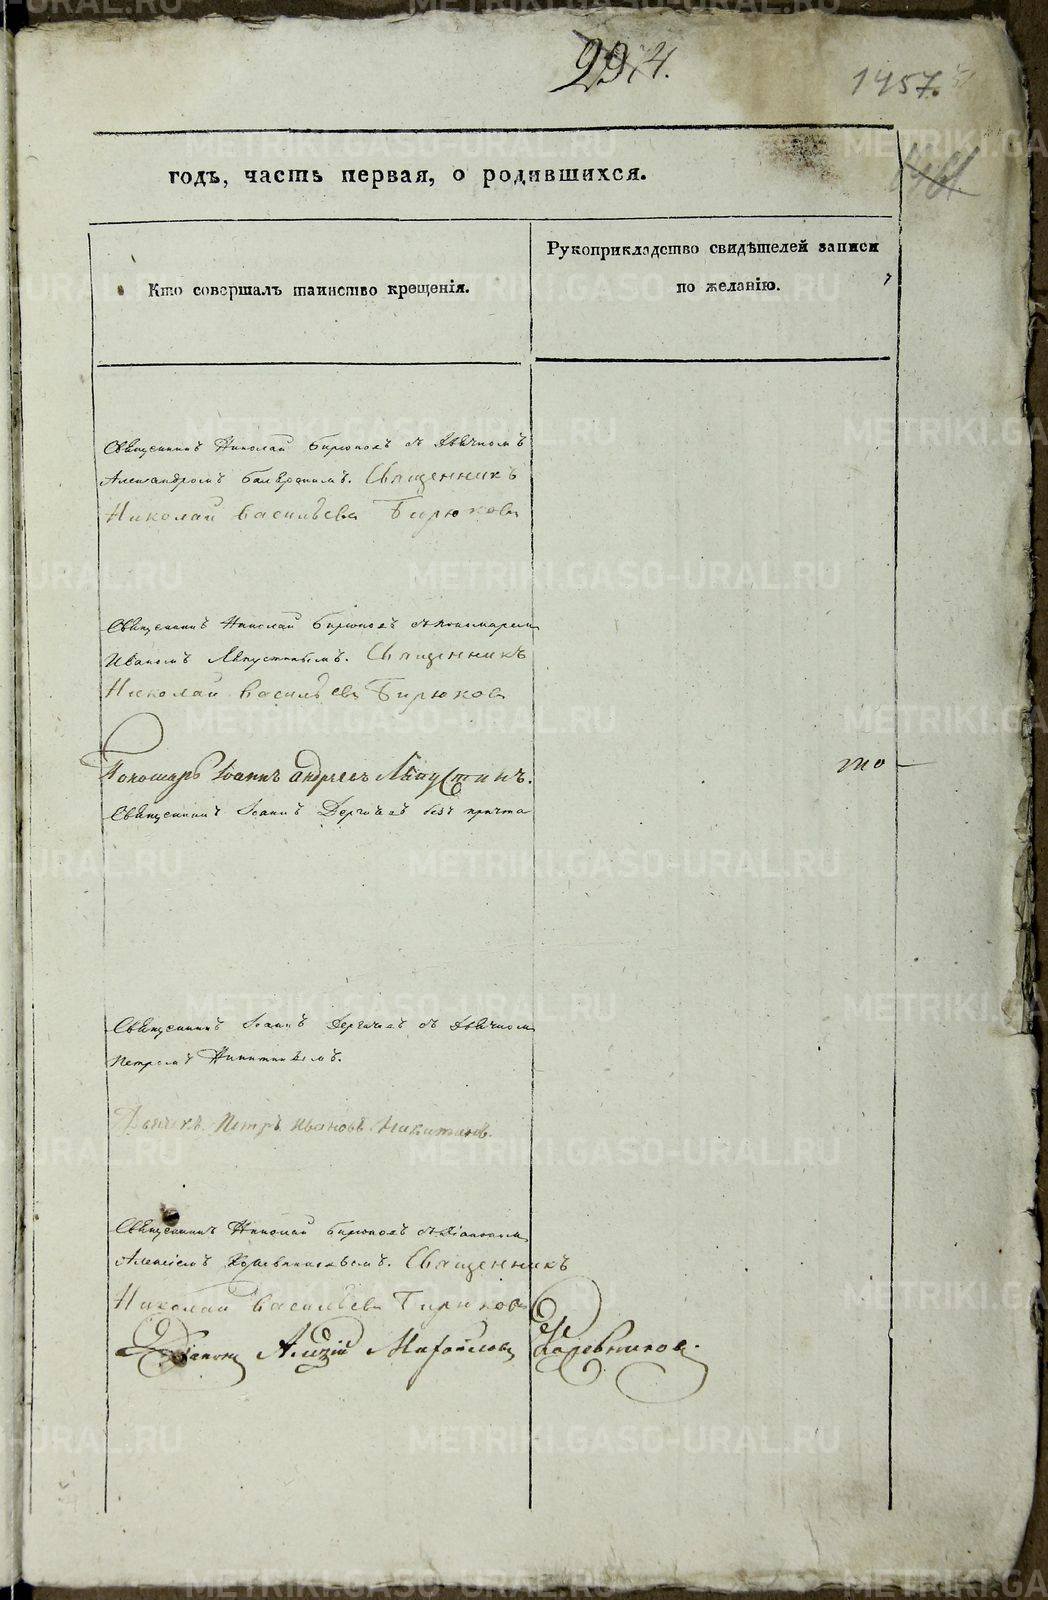 294.
1457.
годъ, часть первая, о родившихся.
Кто совершалъ таинство крещенія.
Рукоприкладство свидѣтелей записи
по желанію.
Священникъ Николай Бирюковъ съ дьячкомъ
Александромъ Священникъ
Николай Васильевъ Бирюковъ
Священникъ Николай Бирюковъ съ пономаремъ
Иваномъ Священникъ
Николай Васильевъ Бирюковъ
Пономарь Іоаннъ Андреевъ
Священникъ Іоаннъ Дергачевъ безъ причта
Священникъ Іоаннъ Дергачевъ съ дьячкомъ
Петромъ Никитинымъ.
Дьячекъ Петръ Ивановъ Никитинъ.
Священникъ Николай Бирюковъ съ діакономъ
Алексіемъ Священникъ
Николай Васильевъ Бирюковъ
Діаконъ Алексій Михайловъ
METRIKI.GASO-URAL.RU